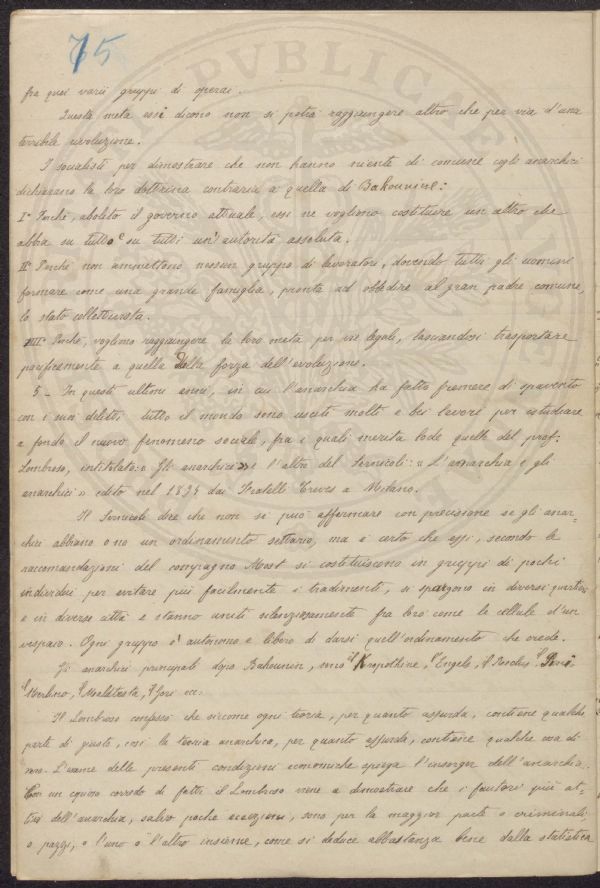 75
fra quei varii gruppi di operai.
Questa meta essi dicono non si potrà raggiungere altro che per via d'una
terribile rivoluzione.
I socialisti per dimostrare che non hanno niente di comune cogli anarchici
dichiarano la loro dottrina contraria a quella di Bakounine:
I° Perchè, abolito il governo attuale, essi ne vogliono costituire un altro che
abbia su tutto e su tutti un'autorità assoluta.
II° Perchè non ammettono nessun gruppo di lavoratori, dovendo tutti gli uomini
formare come una grande famiglia, pronta ad obbedire al gran padre comune,
lo stato collettivista.
III° Perchè, vogliono raggiungere la loro meta per vie legali, lasciandosi trasportare
pacificamente a quella dalla forza dell'evoluzione.
5 - In questi ultimi anni, in cui l'anarchia ha fatto fremere di spavento
con i suoi delitti, tutto il mondo sono usciti molti e bei lavori per istudiare
a fondo il nuovo fenomeno sociale, fra i quali merita lode quello del prof:
Lombroso, intitolato: « Gli anarchici » e l'altro del Sernicoli: « L'anarchia e gli
anarchici » edito nel 1894 dai Fratelli Treves a Milano.
Il Sernicoli dice che non si può affermare con precisione se gli anar-
chici abbiano o no un ordinamento settario, ma è certo che essi, secondo le
raccomandazioni del compagno Most si costituiscono in gruppi di pochi
individui per evitare più facilmente i tradimenti, si spargono in diversi quartieri
e in diverse città e stanno uniti silenziosamente fra loro come le cellule d'un
vespaio. Ogni gruppo è autonomo e libero di darsi quell'ordinamento che crede.
Gli anarchici principali dopo Bakounin, sono il Krapotkine, l'Engels, il Reclus, il
il Merlino, il Malatesta, il Gori ecc.
Il Lombroso confessa che siccome ogni teoria, per quanto assurda, contiene qualche
parte di giusto, così la teoria anarchica, per quanto assurda, contiene qualche cosa di
vero. L'esame delle presenti condizioni economiche spiega l'insorger dell'anarchia.
Con un copioso corredo di fatti il Lombroso viene a dimostrare che i fautori più at-
tivi dell'anarchia, salvo poche eccezioni, sono per la maggior parte o criminali,
o pazzi, o l'uno e l'altro insieme, come si deduce abbastanza bene dalla statistica